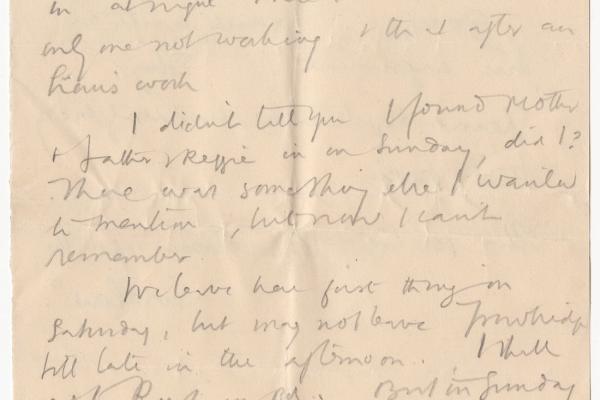 in
only one not working & that after an
hour's work
I didn't tell you I found Mother
& father & Reggie in on Sunday, did I?
There was something else I wanted
to mention, but now I can't
remember.
We leave here first thing on
Saturday, but may not leave Trowbridge
till late in the afternoon. I shall
But in Sunday